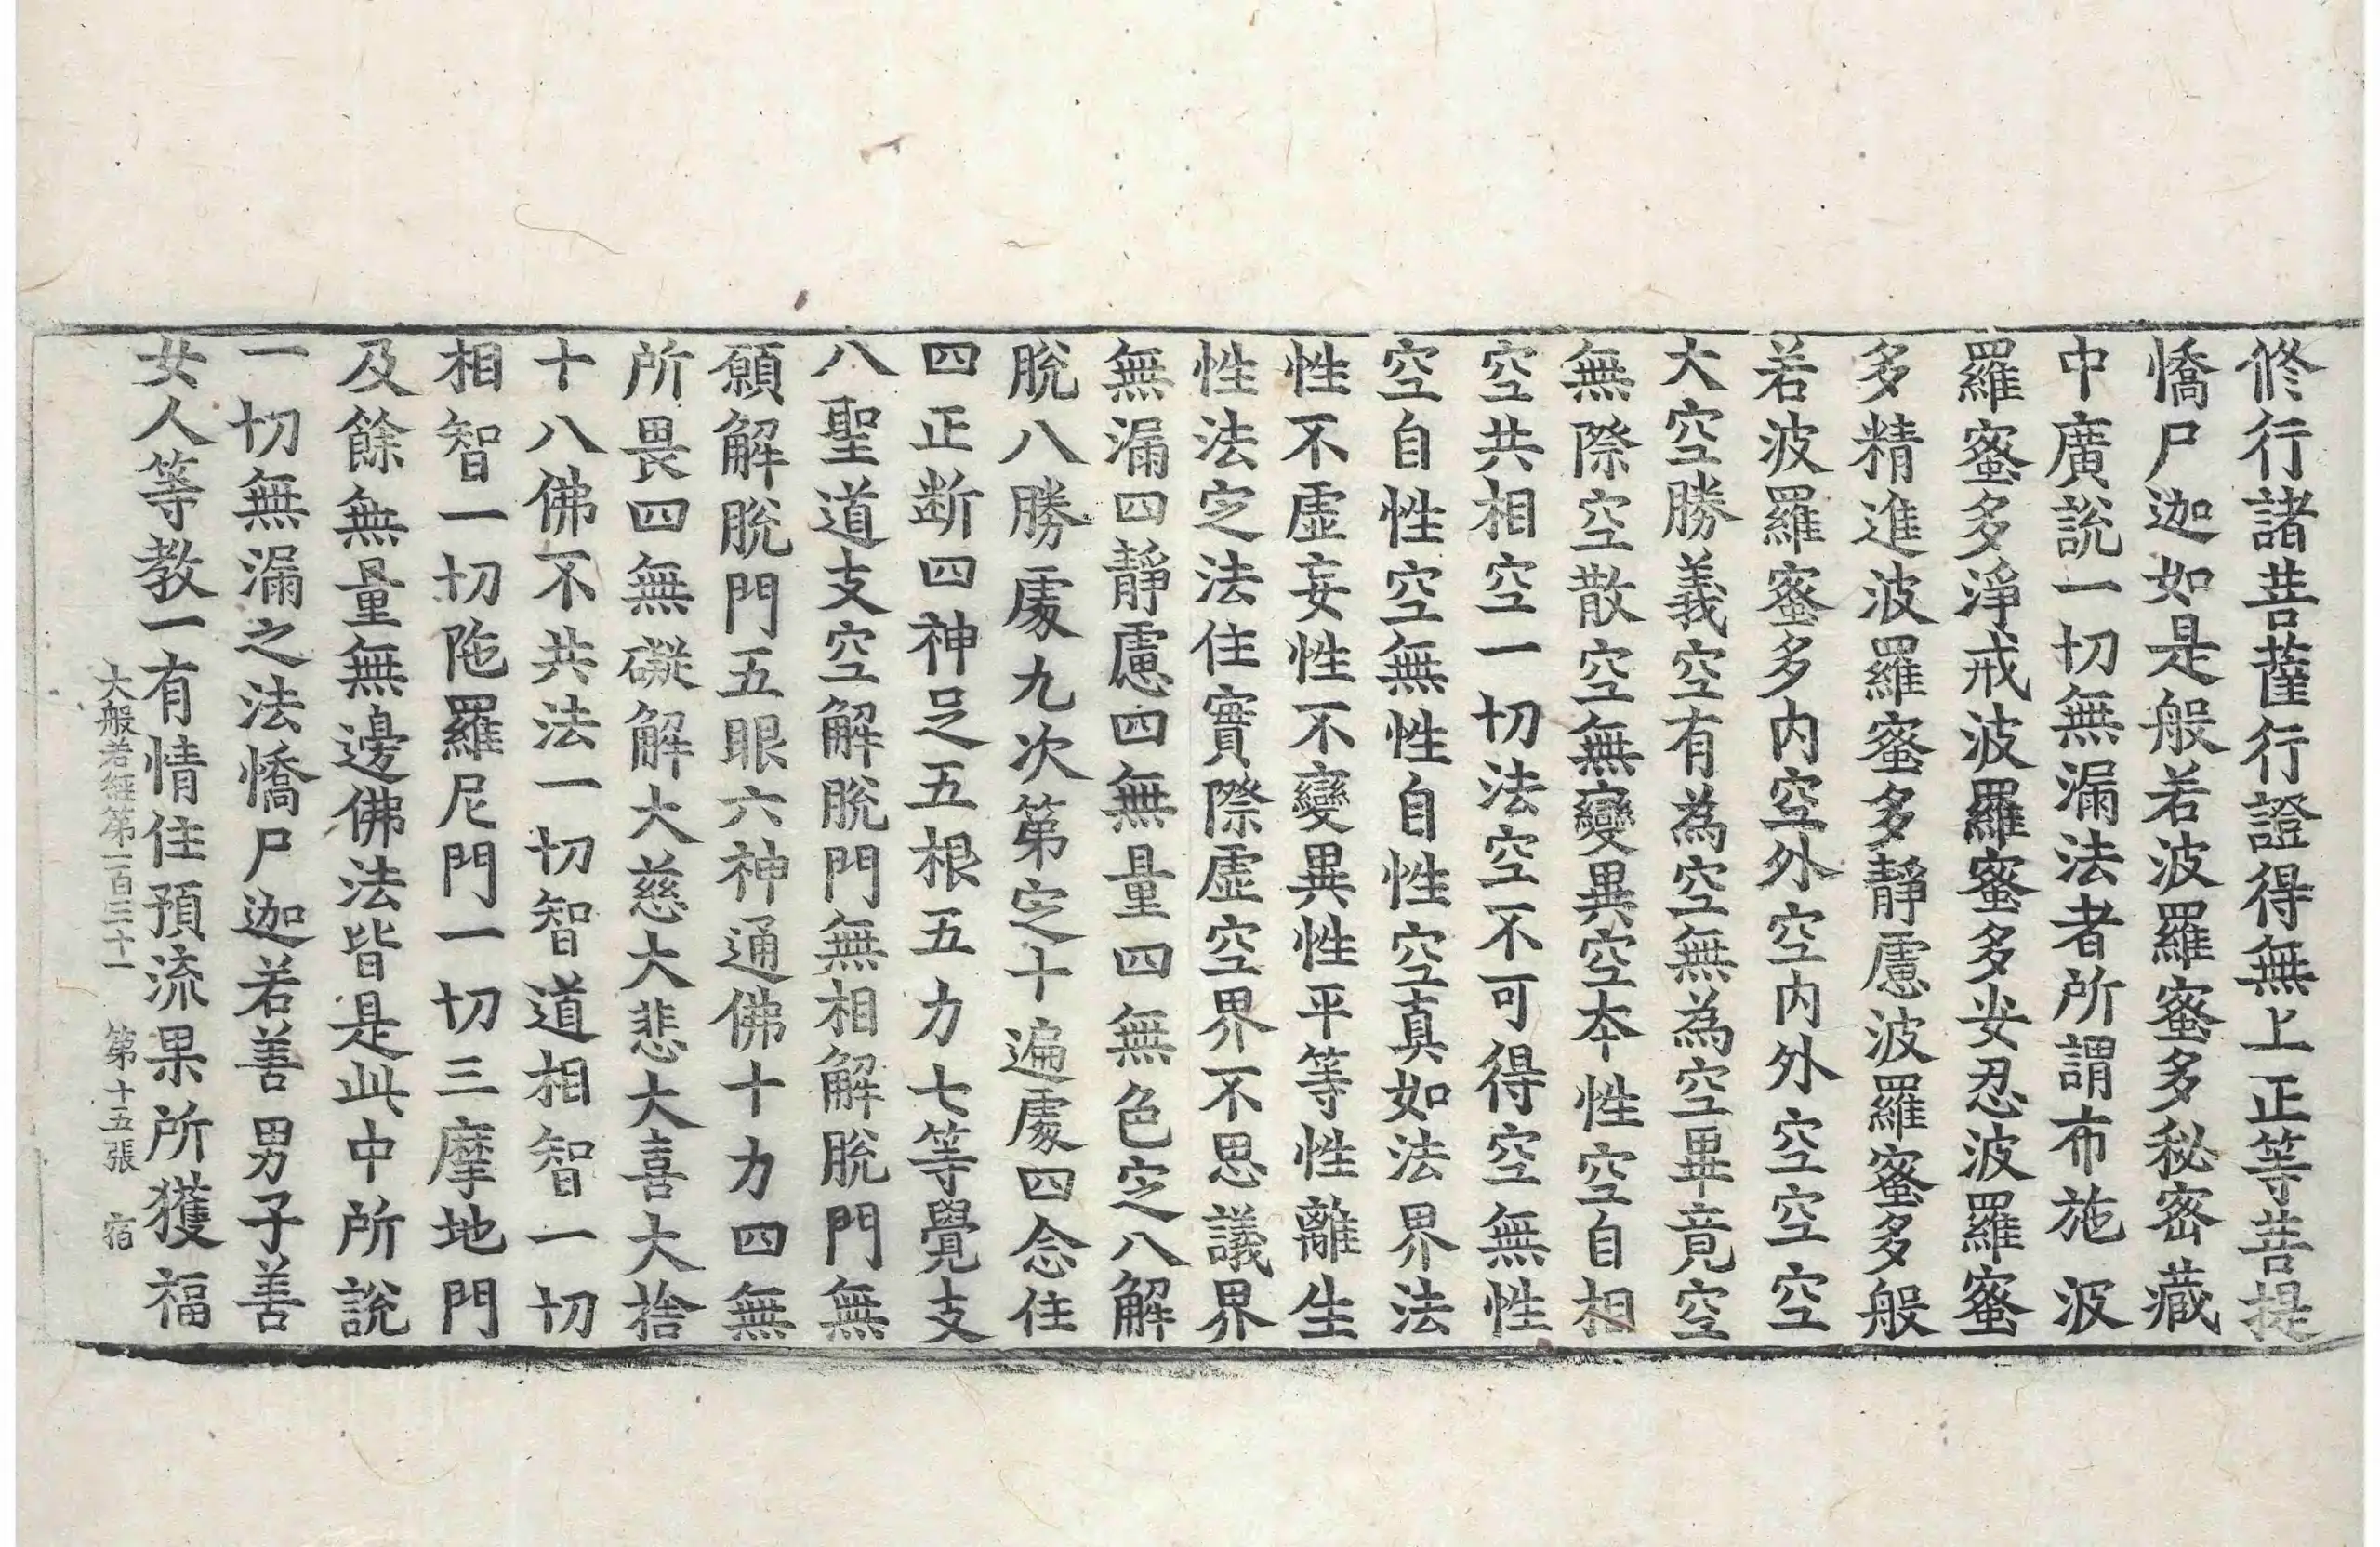 修行諸菩薩行證得無上正等菩提
憍尸迦如是般若波羅蜜多秘密藏
中廣說一切無漏法者所謂布施波
羅蜜多淨戒波羅蜜多安忍波羅蜜
多精進波羅蜜多靜慮波羅蜜多般
若波羅蜜多内空外空内外空空空
大空勝義空有為空無為空畢竟空
無際空散空無變異空本性空自相
空共相空一切法空不可得空無性
空自性空無性自性空真如法界法
性不虛妄性不變異性平等性離生
性法定法住實際虛空界不思議界
無漏四靜慮四無量四無色定八解
脫八勝處九次第定十遍處四念住
四正断四神足五根五力七等覺支
八聖道支空解脫門無相解脫門無
願解脫門五眼六神通佛十力四無
所畏四無礙解大慈大悲大喜大捨
十八佛不共法一切智道相智一切
相智一切陁羅尼門一切三摩地門
及餘無量無邊佛法皆是此中所說
一切無漏之法憍尸迦若善男子善
女人等教一有情住預流果所獲福
大般若經第一百三十一 第十五張 宿